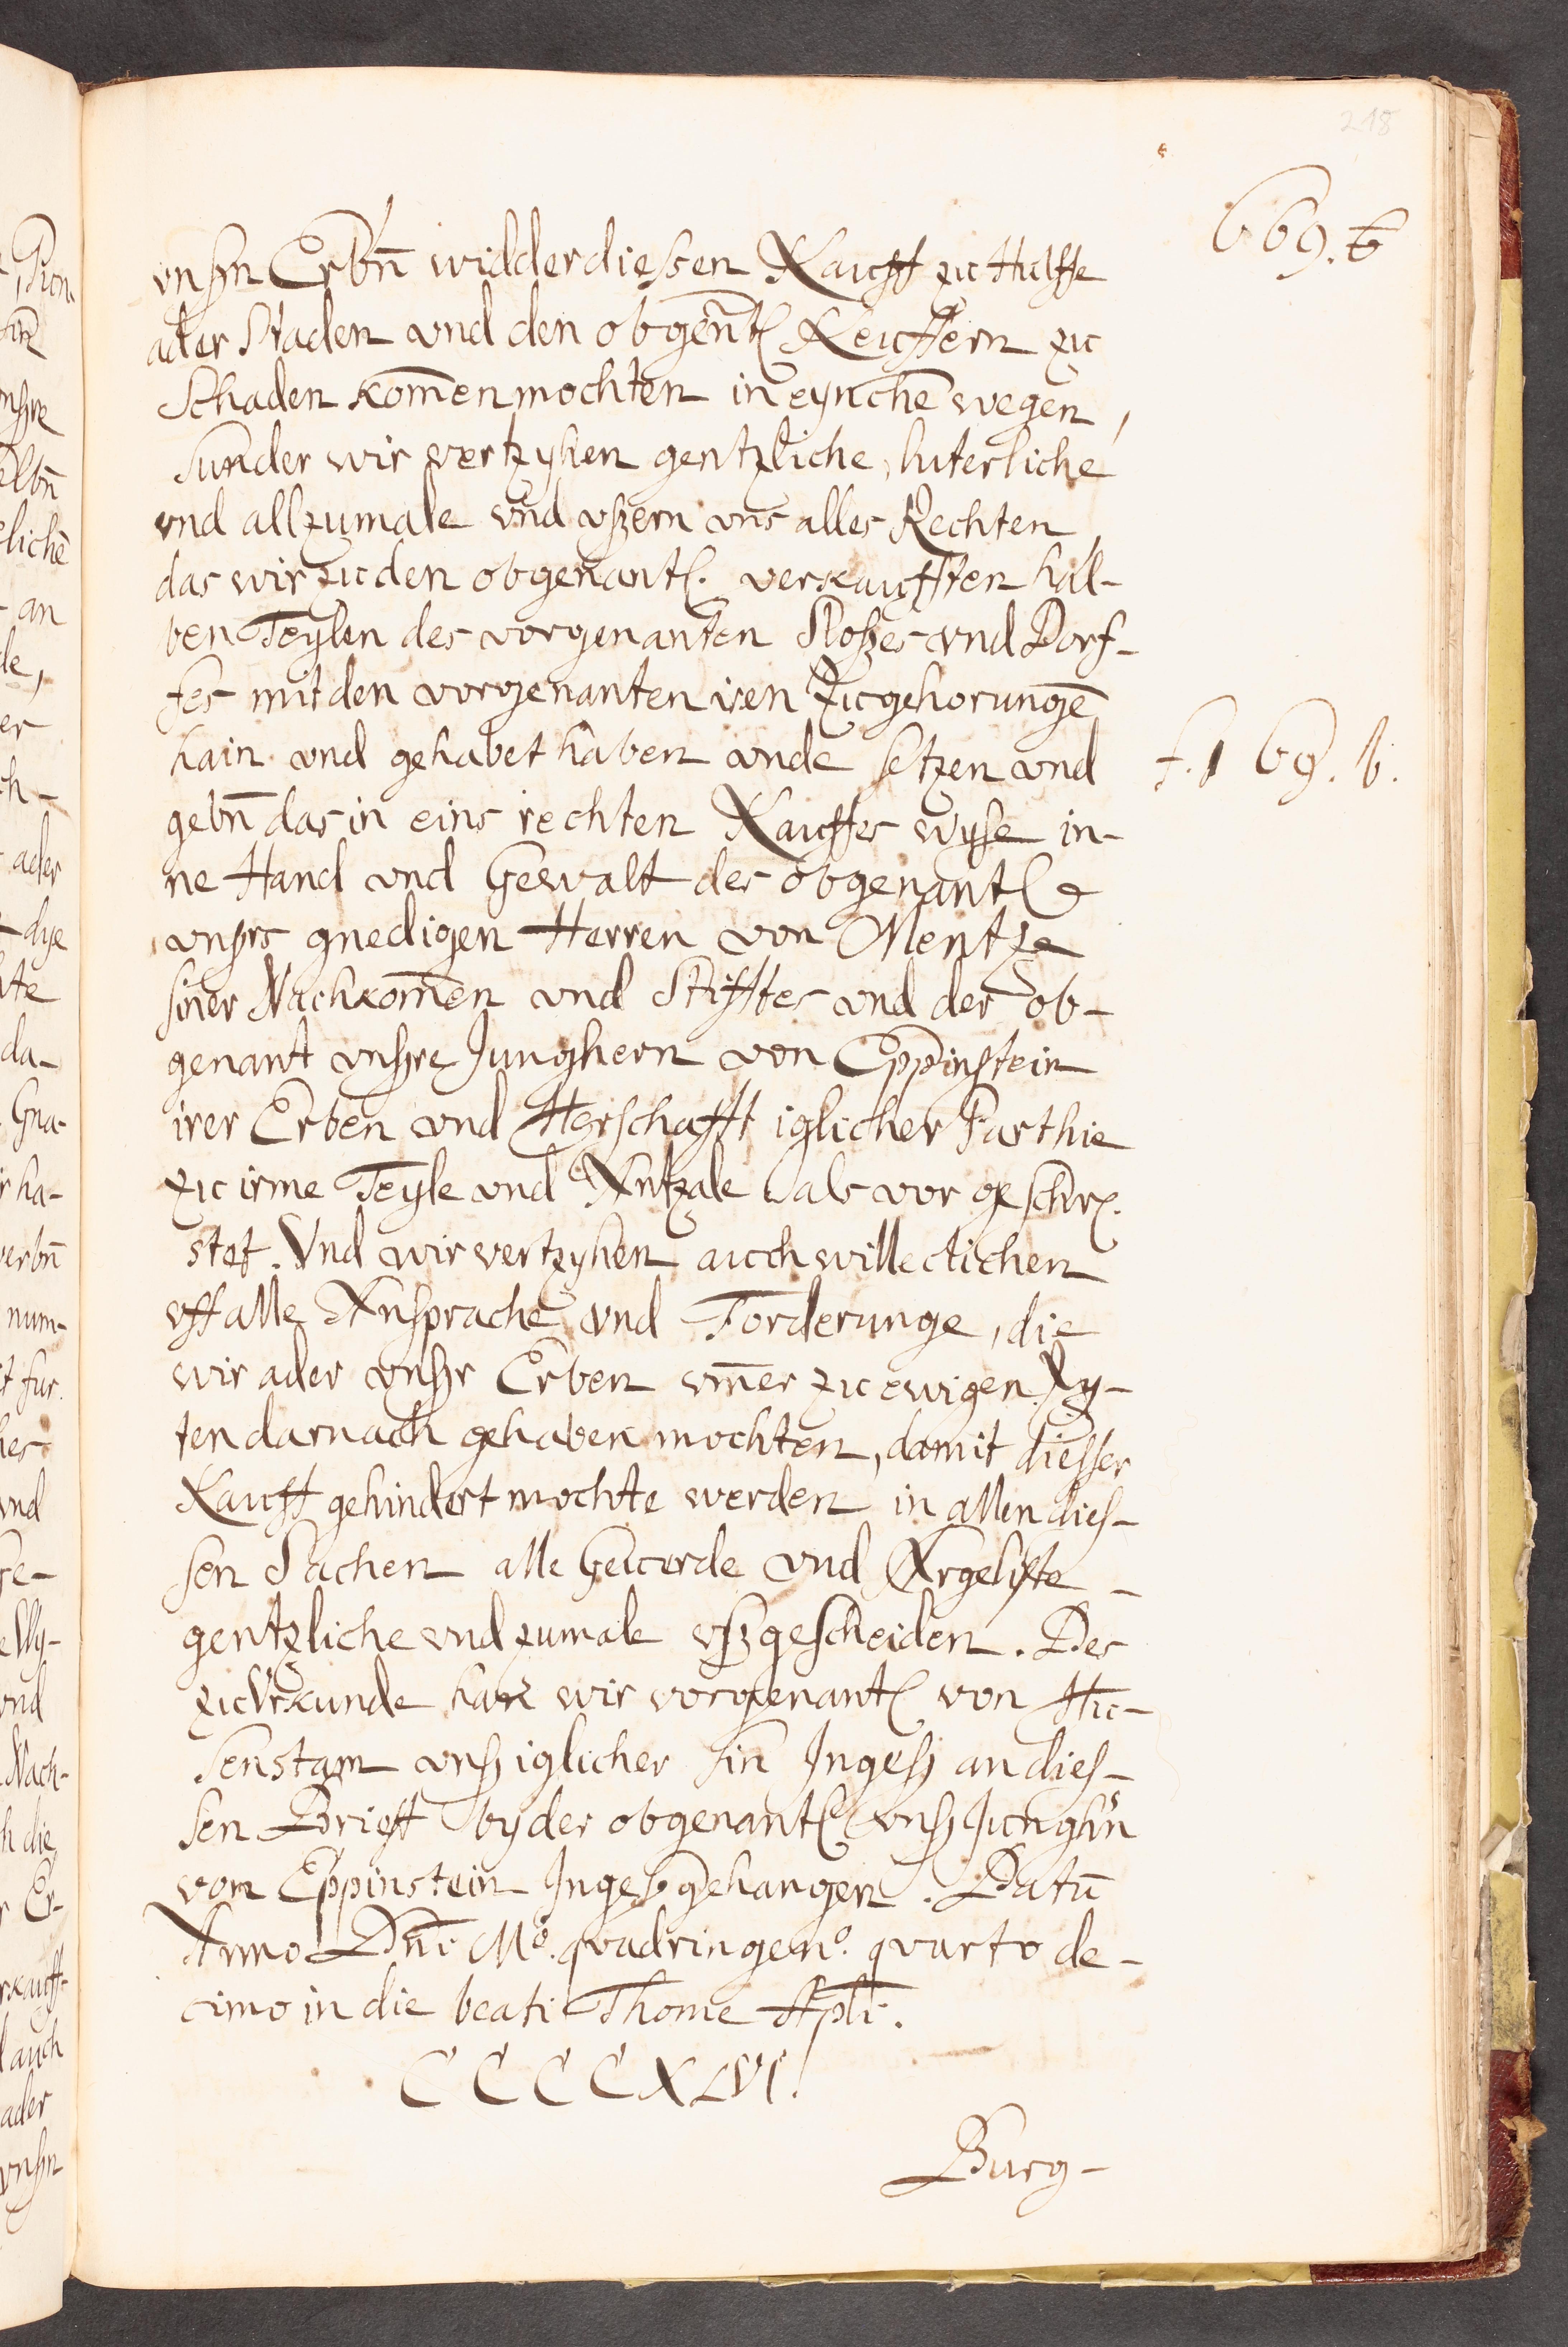 218
669. b
vnsn Erbn̄ widder diessen Kauff zu Hulffe
ader Staden vnd den obgen̄t. Keuffern zu
Schaden kom̄en mochten in eynchē wegen,
sunder wir vertzyhen gentzliche, luterliche
vnd allzumale vnd vszern vns alles Rechten,
das wir zu den obgenant. verkaufften hal-
ben Teylen des vorgenanten Sloszes vnd Dorf-
fes mit den vorgenanten iren Zugehorungē
hain vnd gehabet haben vnde setzen vnd
f. 169. b.
gebn̄ das in eins rechten Kauffes wyse in-
ne Hand vnd Gewalt des obgenant.
vnsrs gnedigen Herren von Mentze
siner Nachkom̄en vnd Stifftes vnd der ob-
genant vnsre Junghern von Eppinstein
irer Erben vnd Herschafft iglicher Parthie
zu irme Teyle vnd Antzale als vor geschr.
stet. Vnd wir vertzyhen auch willeclichen
vff alle Ansprache vnd Forderunge, die
wir ader vnsr Erben vm̄er zu ewigen Zy-
ten darnach gehaben mochten, damit diesser
Kauff gehindert mochte werden in allen dies-
sen Sachen alle Geuerde vnd Argeliste
gentzliche vnd zumale vszgescheiden. Des
zu Vrkunde han wir vorgenant. von Hu-
senstam vnsz iglicher sin Ingesz an dies-
sen Brieff by der obgenant. vnsz Junghn̄
von Eppinstein Ingesz gehangen. Datū
Anno Dn̄i Mo. quadringeno. quarto de-
cimo in die beati Thome Apli.
CCCCXLVI.
Burg-